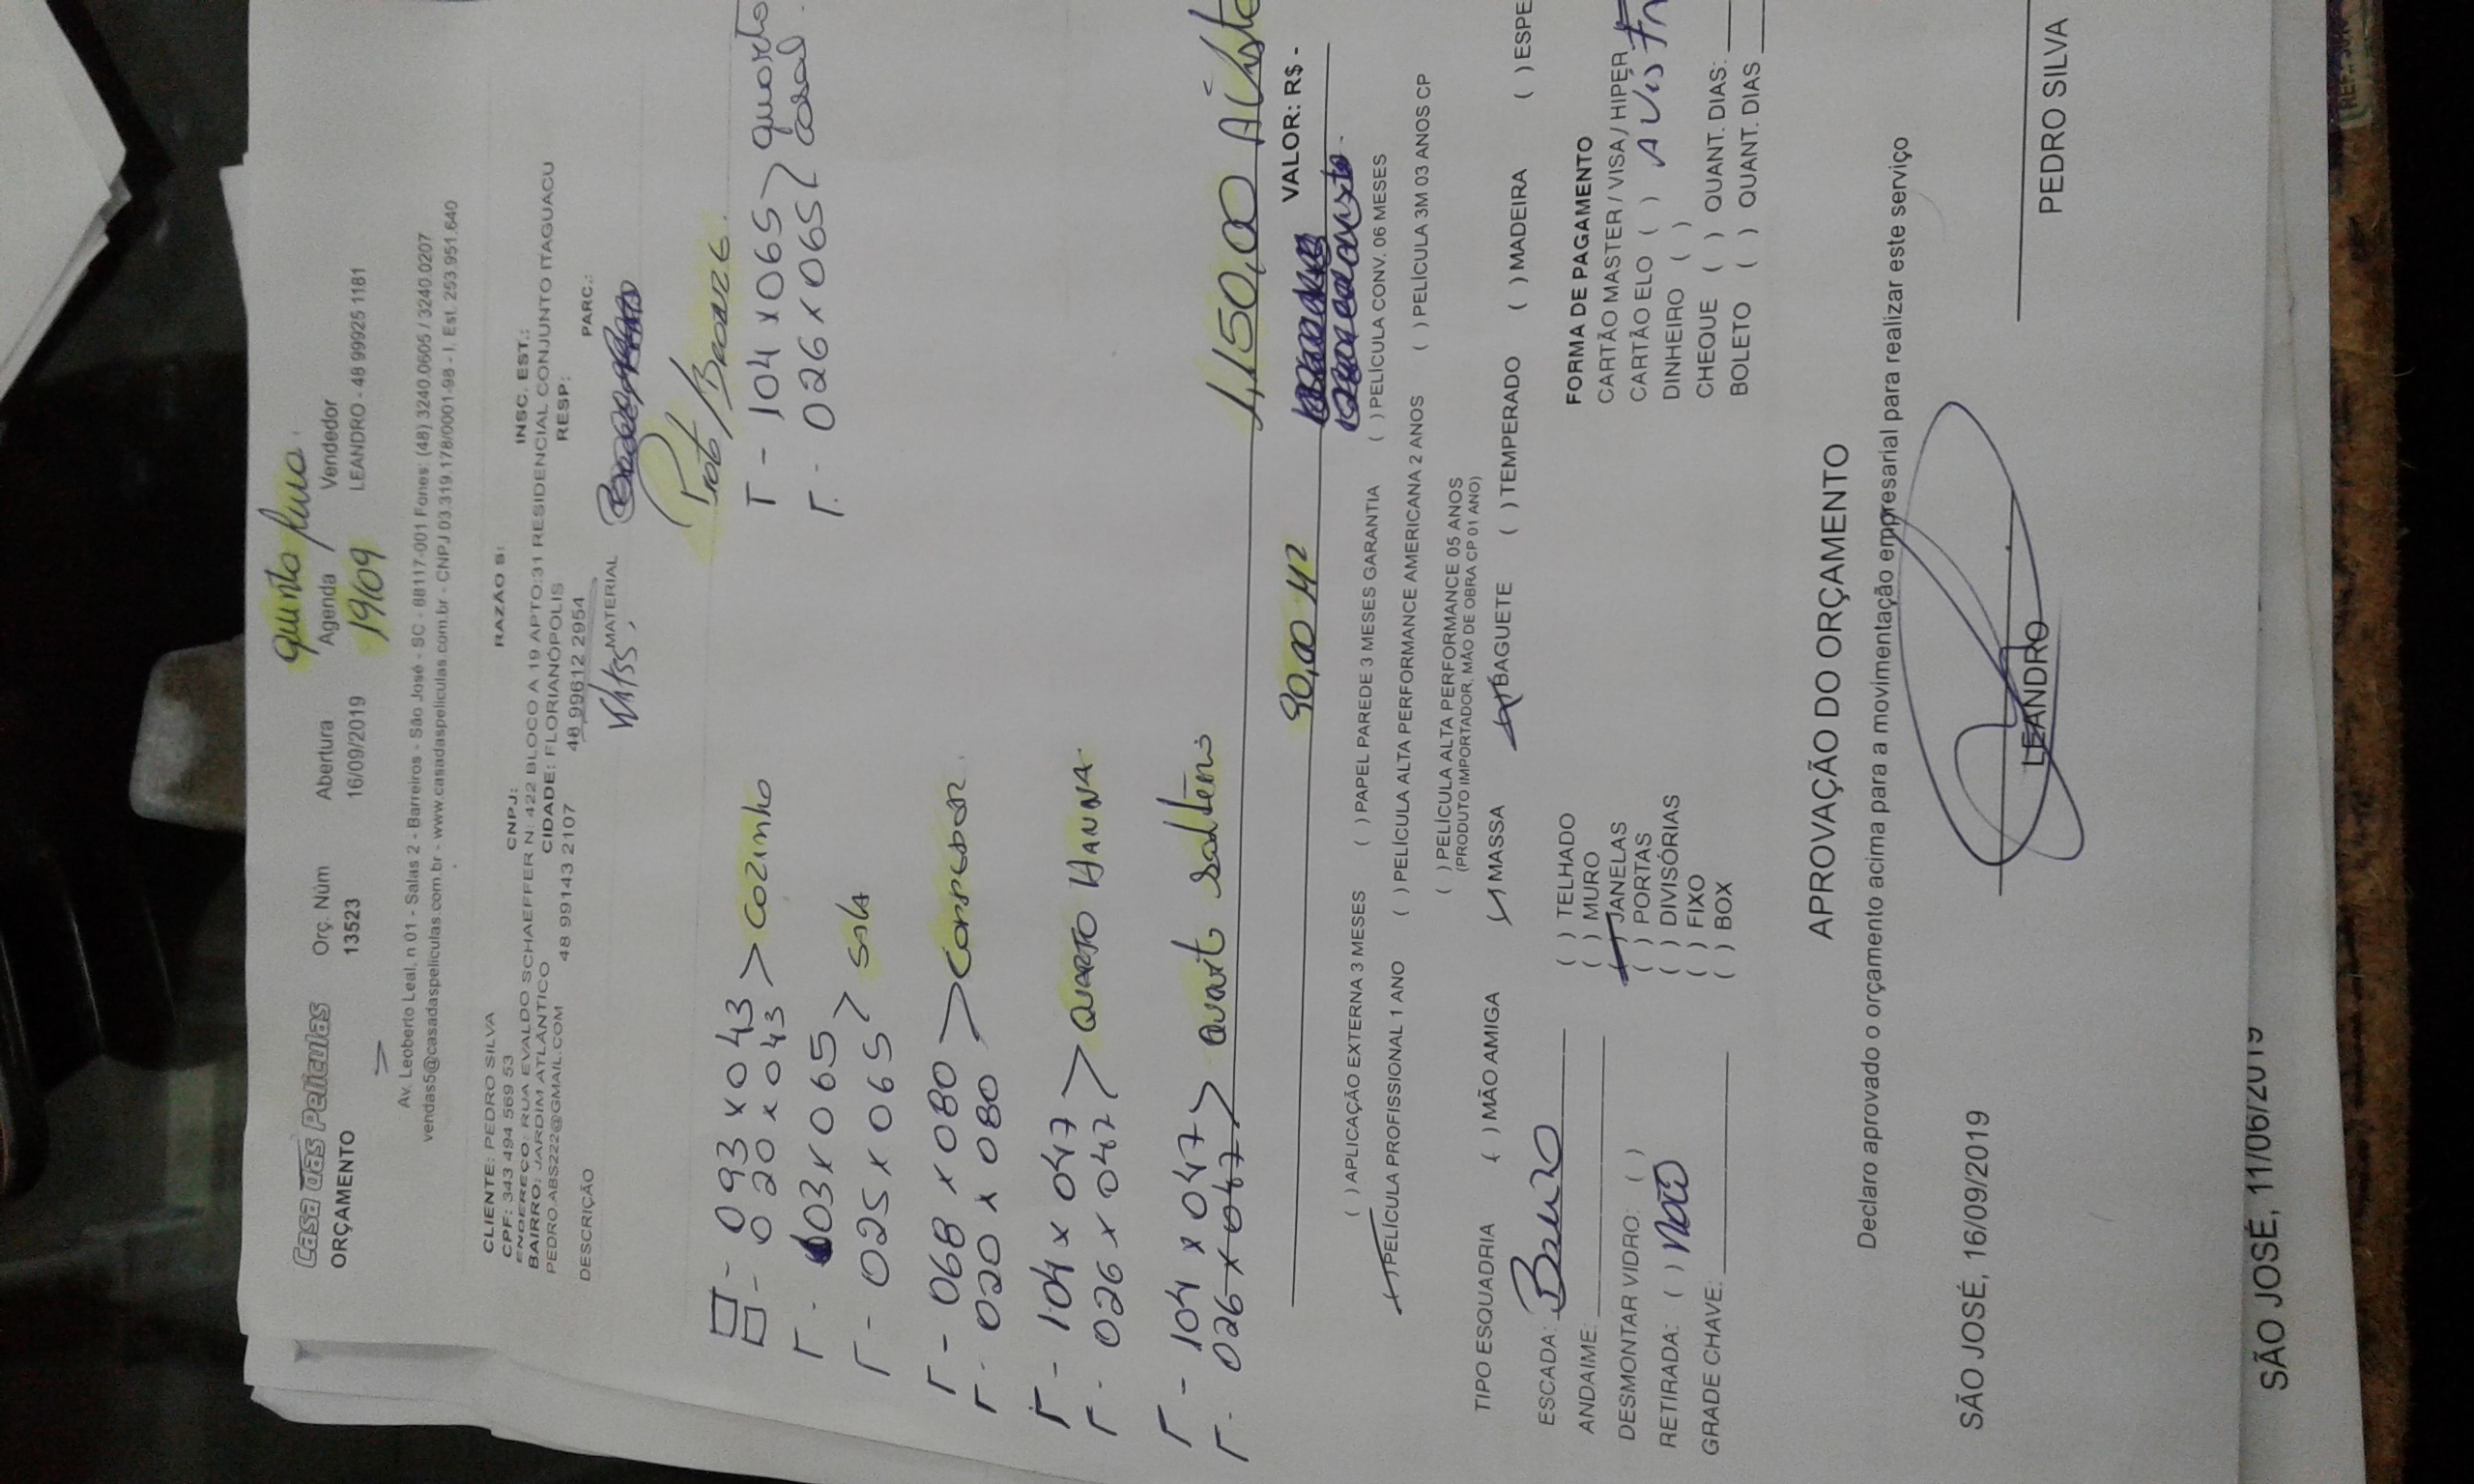 quinta feira
Casa das Películas Orç. Núm Abertura Agenda Vendedor
ORÇAMENTO 13523 16/09/2019 19/09 LEANDRO - 48 99925 1181
Av. Leoberto Leal, n 01 - Salas 2 - Barreiros - São José - SC - 88117-001 Fones: (48) 3240.0605 / 3240.0207
vendas5@casadaspeliculas.com.br - www.casadaspeliculas.com.br - CNPJ 03.319.178/0001-98 - I. Est. 253.951.640
CLIENTE: PEDRO SILVA RAZÃO S:
CPF: 343 494 569 53 CNPJ: INSC. EST.:
ENDEREÇO: RUA EVALDO SCHAEFFER N: 422 BLOCO A 19 APTO:31 RESIDENCIAL CONJUNTO ITAGUACU
BAIRRO: JARDIM ATLÂNTICO CIDADE: FLORIANÓPOLIS RESP:
PEDRO.ABS222@GMAIL.COM 48 99143 2107 48 99612 2954 PARC.:
DESCRIÇÃO Whts, MATERIAL
Prata/Bronze.
- 093 x 043 > Cozinha
- 020 x 043
- 103 x 065 > Sala
- 025 x 065
- 068 x 080 > Corredor
- 020 x 080
- 104 x 047 > QUARTO HANNA
- 026 x 047
- 104 x 047 > quarto solteiro
- 026 x 047
- 104 x 065 > quarto
- 026 x 065 casal.
1,150,00 Á Vista
90,00 M2 VALOR: R$ -
( ) APLICAÇÃO EXTERNA 3 MESES ( ) PAPEL PAREDE 3 MESES GARANTIA ( ) PELÍCULA CONV. 06 MESES
( ) PELÍCULA PROFISSIONAL 1 ANO ( ) PELÍCULA ALTA PERFORMANCE AMERICANA 2 ANOS ( ) PELÍCULA 3M 03 ANOS CP
( ) PELÍCULA ALTA PERFORMANCE 05 ANOS
(PRODUTO IMPORTADOR, MÃO DE OBRA CP 01 ANO)
TIPO ESQUADRIA ( ) MÃO AMIGA ( ) MASSA ( ) BAGUETE ( ) TEMPERADO ( ) MADEIRA ( ) ESPE
ESCADA:
ANDAIME:
DESMONTAR VIDRO: ( )
RETIRADA: ( ) não
GRADE CHAVE:
( ) TELHADO
( ) MURO
( ) JANELAS
( ) PORTAS
( ) DIVISÓRIAS
( ) FIXO
( ) BOX
FORMA DE PAGAMENTO
CARTÃO MASTER / VISA / HIPER
CARTÃO ELO ( ) A Vista
DINHEIRO ( )
CHEQUE ( ) QUANT. DIAS:
BOLETO ( ) QUANT. DIAS
APROVAÇÃO DO ORÇAMENTO
Declaro aprovado o orçamento acima para a movimentação empresarial para realizar este serviço
SÃO JOSÉ, 16/09/2019 LEANDRO PEDRO SILVA
SÃO JOSÉ, 11/06/2019